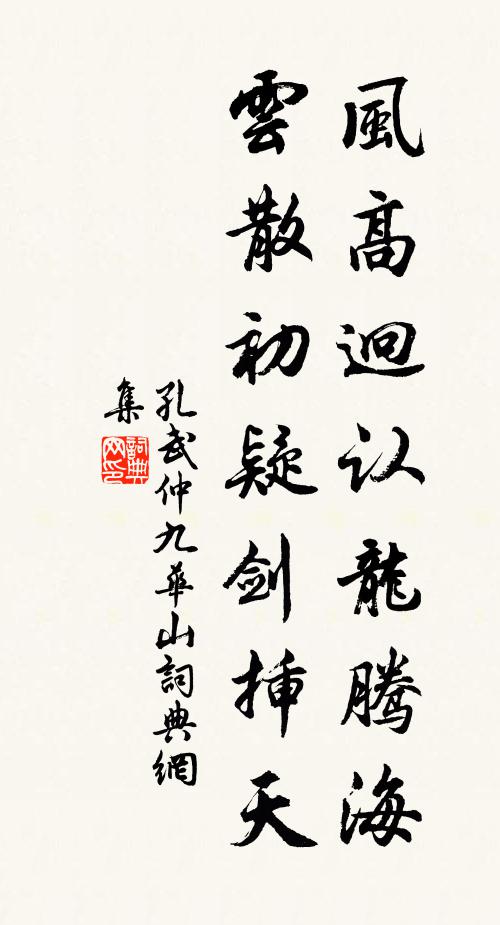 風高迴认龍腾海
雲散初疑剑揷天
孔武仲九華山詞典網
集
詞典
网印